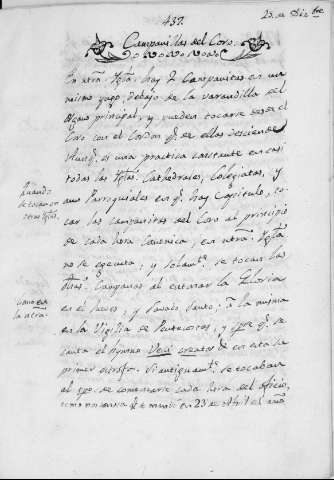 457.
23 de Dizbre
Campanillas del Coro.
En ntra. Yglª. hay 2 Campanitas en un
mismo yugo, debajo de la varandilla del
Organo principal, y pueden tocarse desde el
Coro con el Cordon qe. de ellas desciende
Aunqe. es una practica constante en casi
todas las Yglªs. Cathedrales, Colegiatas, y
aun Parroquiales en qe. hay Capitulo, to-
car las campanitas del Coro al principio
de cada hora Canonica, en ntra. Yglª
no se egecuta, y solamte. se tocan las
dhas. Campanas al entonar la Gloria
en el Jueves, y Savado Santo; à la misma
en la Vigilia de Pentecostes, y qe. se
canta el hymno Veni creator de en esta la
primer estrofa. Si antiguamte. se tocaban
al de comenzarse cada hora del oficio,
en 23 de Abril en
Quando
se tocan en
otras Yglªs.
como en
la ntra.